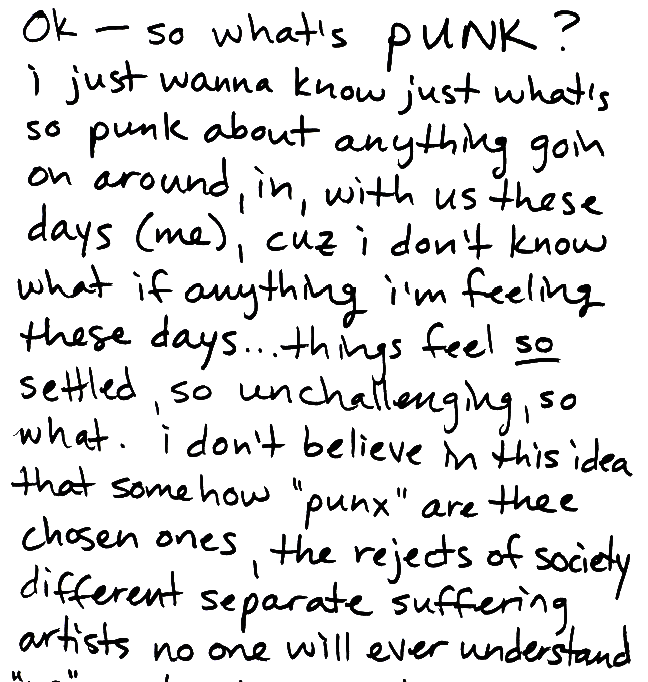 Ok — so what's PUNK?
i just wanna know just what's
so punk about anything goin
on around, in, with us these
days (me), cuz i don't know
what if anything i'm feeling
these days...things feel so
settled, so unchallenging, so
what. i don't believe in this idea
that somehow "punx" are thee
chosen ones, the rejects of society
different separate suffering
artists no one will ever understand